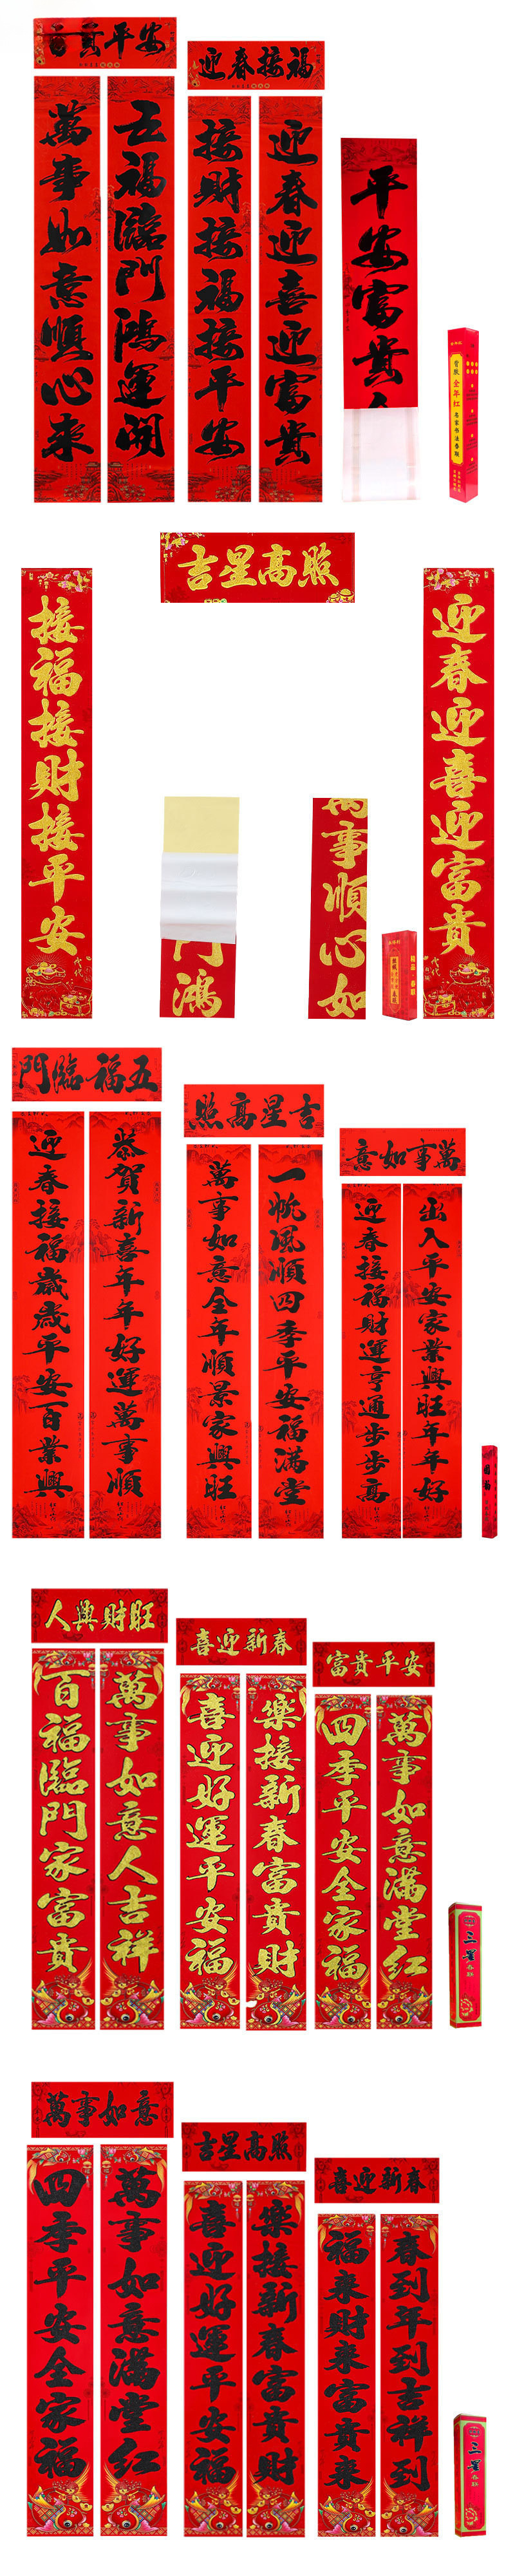 富貴平安
萬事如意順心來
五福臨門鴻運開
迎春接福
接財接福接平安
迎春迎喜迎富貴
平安富貴
背胶全年红名家书法春联
吉星高照
接福接財接平安
迎春迎喜迎富貴
門鴻
萬事順心如
精品·春联
門臨福五
迎春接福歲歲平安百業興
恭賀新喜年年好運萬事順
照高星吉
萬事如意全年順景家興旺
一帆風順四季平安福滿堂
意如事萬
迎春接福財運亨通步步高
出入平安家業興旺年年好
人興財旺
百福臨門家富貴
萬事如意人吉祥
喜迎新春
喜迎好運平安福
樂接新春富貴財
富貴平安
四季平安全家福
萬事如意滿堂红
三星春联
萬事如意
四季平安全家福
萬事如意滿堂红
吉星高照
喜迎好運平安福
樂接新春富貴財
喜迎新春
福来財来富貴来
春到年到吉祥到
三星春联